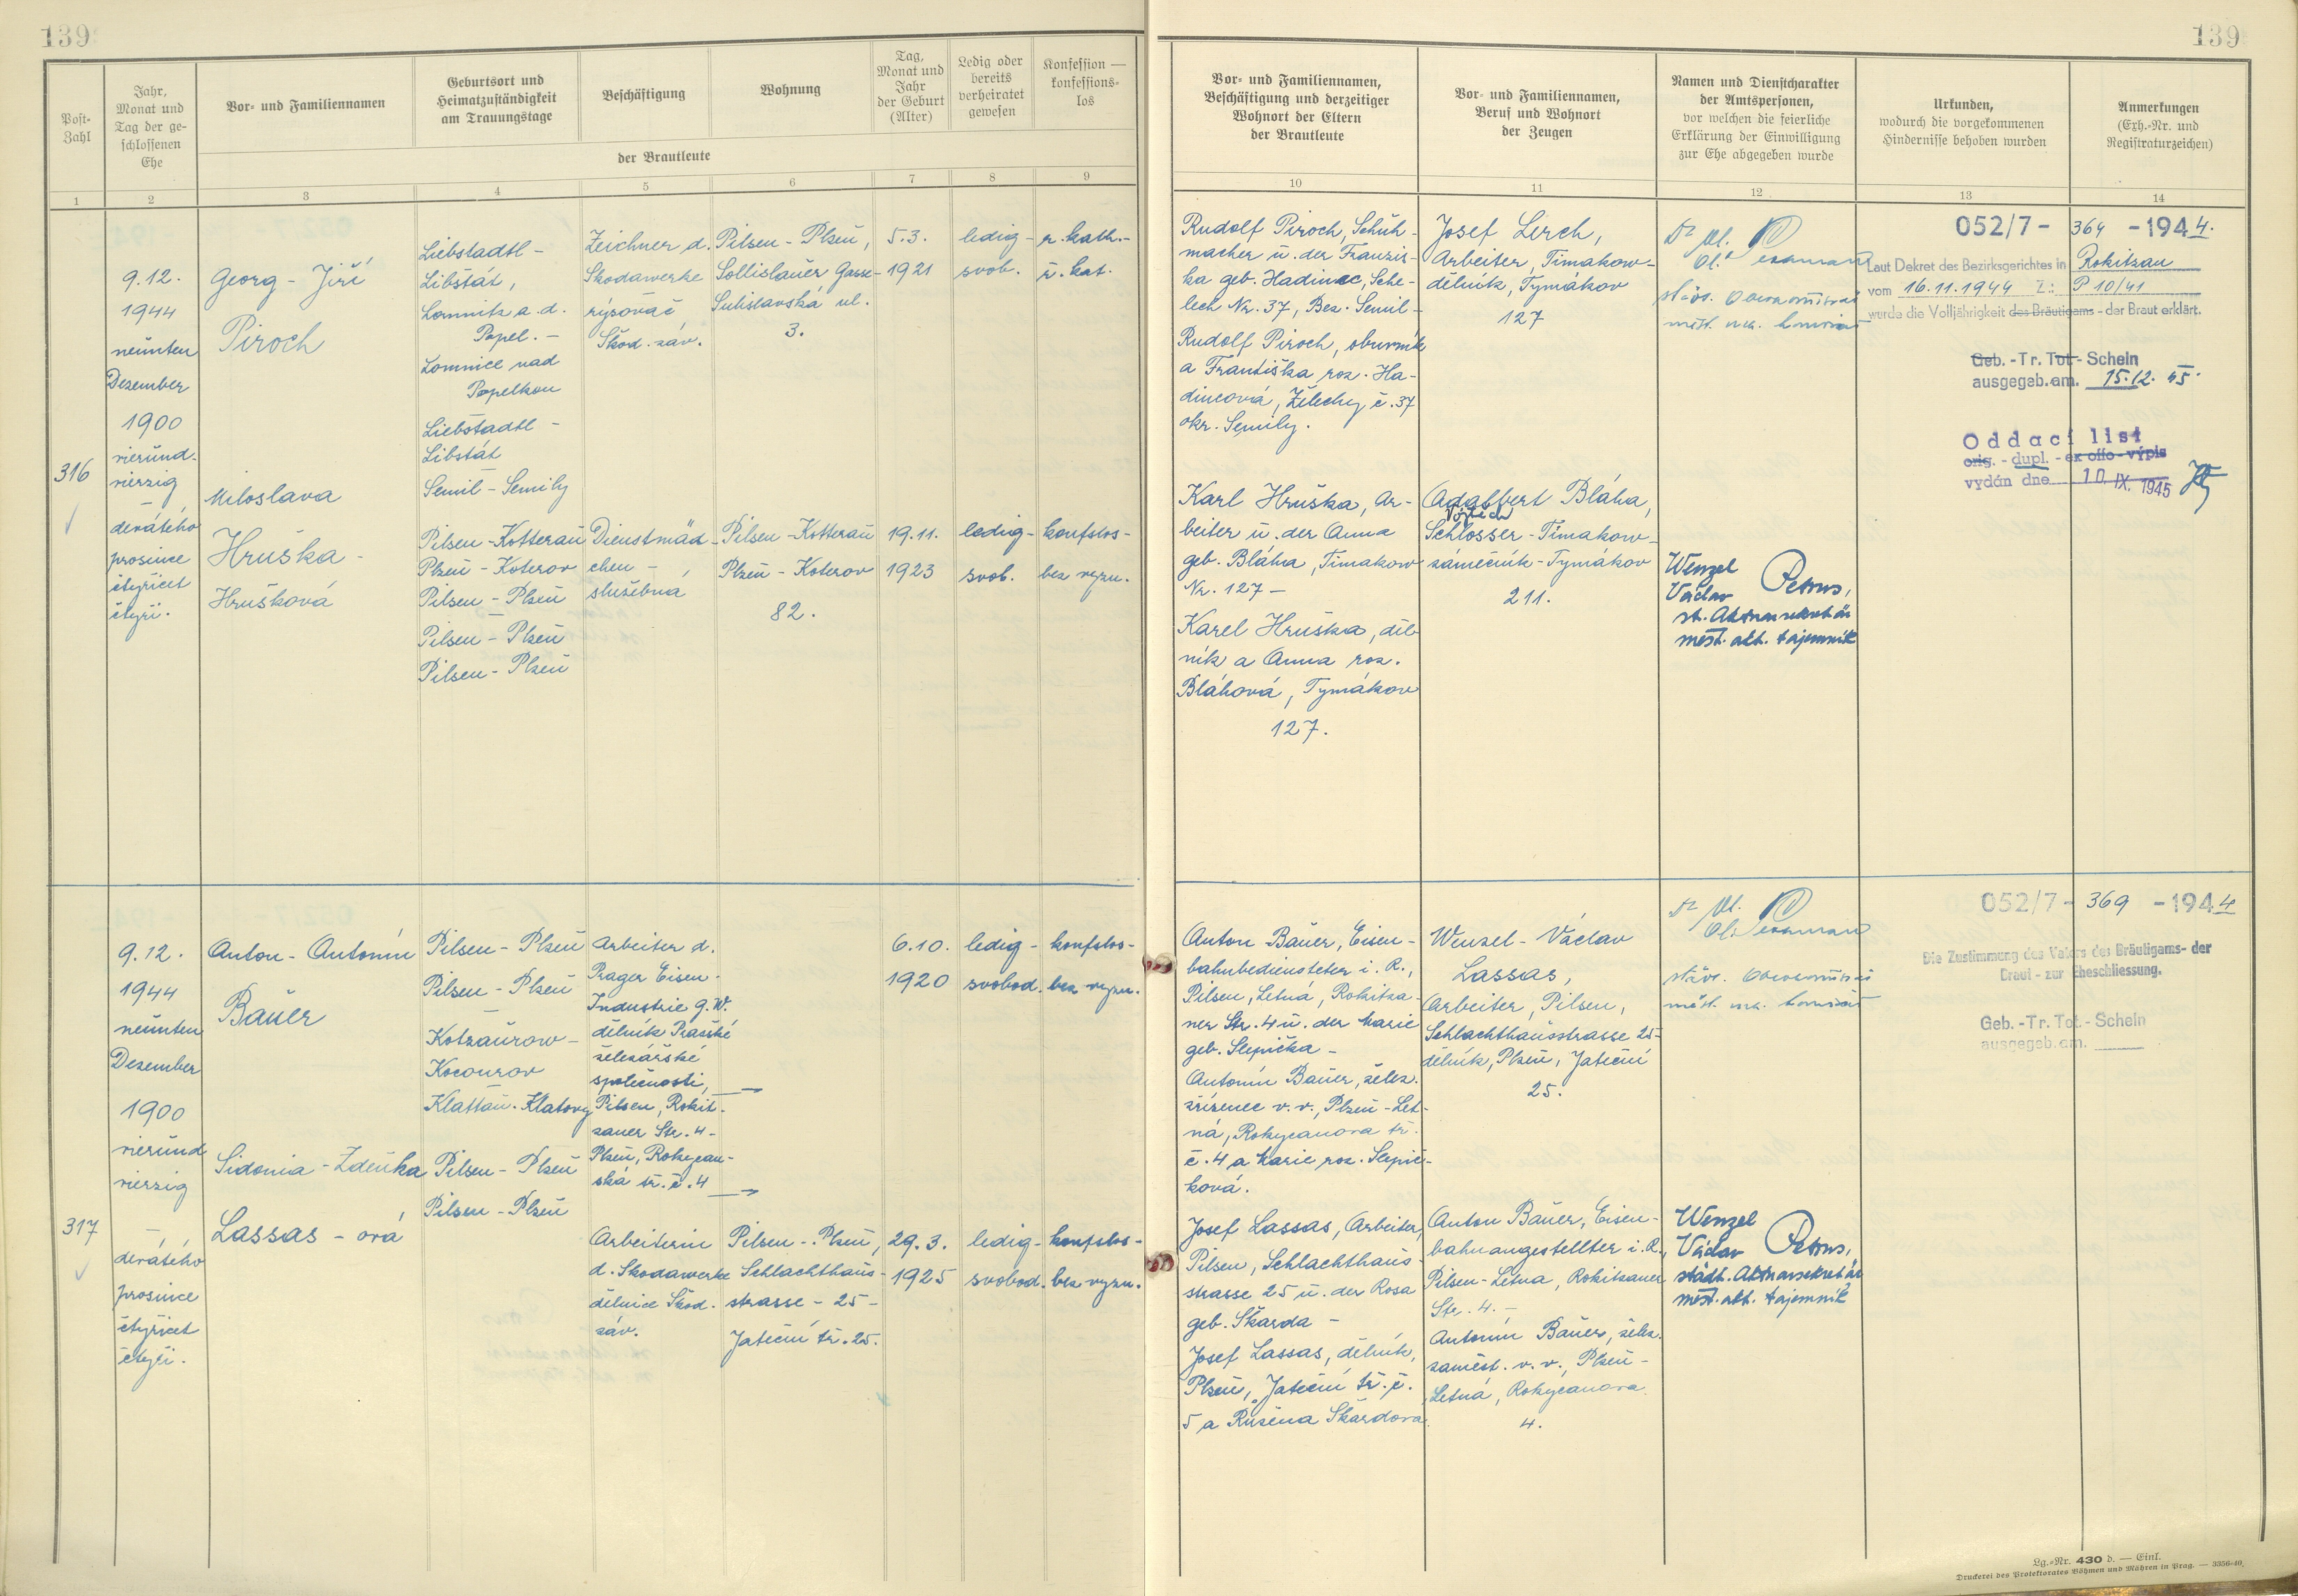 139
139
Post-
Zahl
Jahr,
Monat und
Tag der ge-
schlossenen
Ehe
Vor- und Familiennamen
Geburtsort und
Heimatzuständigkeit
am Trauungstage
Beschäftigung
Wohnung
Tag,
Monat und
Jahr
der Geburt
(Alter)
Ledig oder
bereits
verheiratet
gewesen
Konfession —
konfessions-
los
der Brautleute
1
2
3
4
5
6
7
8
9
Vor- und Familiennamen,
Beschäftigung und derzeitiger
Wohnort der Eltern
der Brautleute
Vor- und Familiennamen,
Beruf und Wohnort
der Zeugen
Namen und Dienstcharakter
der Amtspersonen,
vor welchen die feierliche
Erklärung der Einwilligung
zur Ehe abgegeben wurde
Urkunden,
wodurch die vorgekommenen
Hindernisse behoben wurden
Anmerkungen
(Exh.-Nr. und
Registraturzeichen)
10
11
12
13
14
316
9.12.
1944
neunten
Dezember
1900
vierund-
vierzig
—
devátého
prosince
čtyřicet
čtyři.
Georg - Jiří
Piroch
Miloslava
Hruška -
Hrušková
Liebstadtl -
Libštát,
Lomnitz a. d.
Popel. -
Lomnice nad
Popelkou
Liebstadtl -
Libštát
Semil - Semily
Pilsen - Kotterau
Plzeň - Koterov
Pilsen - Plzeň
Pilsen - Plzeň
Pilsen - Plzeň
Zeichner d.
Skodawerke
rýsovač
Škod. záv.
Dienstmäd-
chen -
služebná
Pilsen - Plzeň,
Sollislauer Gasse-
Sulislavská ul.
3.
Pilsen - Kotterau
Plzeň - Koterov
82.
5.3.
1921
19.11.
1923
ledig -
svob.
ledig -
svob.
r. kath. -
ř. kat.
konfslos -
bez vyzn.
Rudolf Piroch, Schuh-
macher u. der Franzis-
ka geb. Hadinec, Sche-
lech Nr. 37, Bez. Semil -
Rudolf Piroch, obuvník
a Františka roz. Ha-
dincová, Želechy č. 37
okr. Semily.
Karl Hruška, Ar-
beiter u. der Anna
geb. Bláha, Timakow
Nr. 127 -
Karel Hruška, děl-
ník a Anna roz.
Bláhová, Tymákov
127.
Josef Lerch,
Arbeiter, Timakow-
dělník, Tymákov
127
Adalbert Bláha,
Vojtěch
Schlosser - Timakow-
zámečník - Tymákov
211.
Wenzel
Václav Petrus,
st. Aktuarsekretär
měst. akt. tajemník
052/7 - 364 - 1944.
Laut Dekret des Bezirksgerichtes in Rokitzan
vom 16.11.1944 Z.: P 10/41
wurde die Volljährigkeit des Bräutigams - der Braut erklärt.
Geb. - Tr. Tot - Schein
ausgegeb. am. 15.12. 45.
Oddací list
orig. - dupl. - ex offo - výpis
vydán dne 10. IX. 1945
317
9.12.
1944
neunten
Dezember
1900
vierund
vierzig
—
devátého
prosince
čtyřicet
čtyři.
Anton - Antonín
Bauer
Sidonia - Zdeňka
Lassas - ová
Pilsen - Plzeň
Pilsen - Plzeň
—
Kotzaurow -
Kocourov
Klattau - Klatovy
Pilsen - Plzeň
Pilsen - Plzeň
Arbeiter d.
Prager Eisen-
Industrie G. W.
dělník Pražské
železářské
společnosti,
Pilsen, Rokit-
zaner Str. 4 -
Plzeň, Rokycan-
ská tř. č. 4
Arbeiterin
d. Skodawerke
dělnice Škod.
záv.
Pilsen - Plzeň,
Schlachthaus-
strasse - 25 -
Jateční tř. 25.
6.10.
1920
29.3.
1925
ledig -
svobod.
ledig -
svobod.
konfslos -
bez vyzn.
konfslos -
bez vyzn.
Anton Bauer, Eisen-
bahnbediensteter i. R.,
Pilsen, Letná, Rokitza-
ner Str. 4 u. der Marie
geb. Slepička -
Antonín Bauer, želez.
zřízenec v. v., Plzeň - Let-
ná, Rokycanova tř.
č. 4 a Marie roz. Slepič-
ková.
Josef Lassas, Arbeiter,
Pilsen, Schlachthaus-
strasse 25 u. der Rosa
geb. Škarda -
Josef Lassas, dělník,
Plzeň, Jateční tř. č.
5 a Růžena Škardova
Wenzel - Václav
Lassas,
Arbeiter, Pilsen,
Schlachthausstrasse 25-
dělník, Plzeň, Jateční
25.
Anton Bauer, Eisen-
bahnangestellter i. R.,
Pilsen - Letna, Rokitzaner
Str. 4. -
Antonín Bauer, želez.
zaměst. v. v., Plzeň -
Letná, Rokycanova
4.
Wenzel
Václav Petrus,
städt. Aktuarsekretär
měst. akt. tajemník
052/7 - 369 - 1944
Die Zustimmung des Vaters des Bräutigams- der
Braut - zur Eheschliessung.
Geb. - Tr. Tot. - Schein
ausgegeb. am.
Lg.-Nr. 430 d. — Einl.
Druckerei des Protektorates Böhmen und Mähren in Prag. — 3356-40.